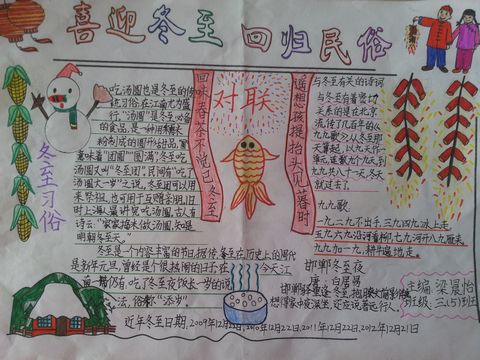 喜迎冬至 回归民俗
冬至习俗
吃汤圆也是冬至的传
统习俗,在江南尤为盛
行。"汤圆"是冬至必备
的食品,是一种用糯米
粉制成的圆形甜品,"圆"
意味着"团圆""圆满",冬至吃
汤圆又叫"冬至团"。民间有"吃了
汤圆大一岁"之说。冬至团可以用
来祭祖,也可用于互赠亲朋。旧
时上海人最讲究吃汤圆。古人有
诗云:"家家捣米做汤圆,知是
明朝冬至天。"
冬至是一个内容丰富的节日,据传,冬至在历史上的周代
是新年元旦,曾经是个很热闹的日子。在今天江
南一带仍有吃了冬至夜饭长一岁的说
法,俗称"添岁"。
近年冬至日期:2009年12月22日,2010年12月22日,2011年12月22日,2012年12月21日
回味春茶不觉已冬至
对联
遥想孩提抬头见暮时
与冬至有关的诗词
与冬至有着密切
关系的是在北京
流传了几百年的《
九九歌》。从冬至那
天算起,以九天作
单元,连数九个九天,到
九九共八十一天,冬天
就过去了。
九九歌
一九二九不出手,三九四九冰上走
五九六九沿河看柳,七九河开八九雁来
九九加一九,耕牛遍地走。
邯郸冬至夜
唐 白居易
邯郸驿里逢冬至,抱膝灯前影伴身
想得家中夜深坐,还应说着远行人。
主编:梁晨怡
班级:三(5)班